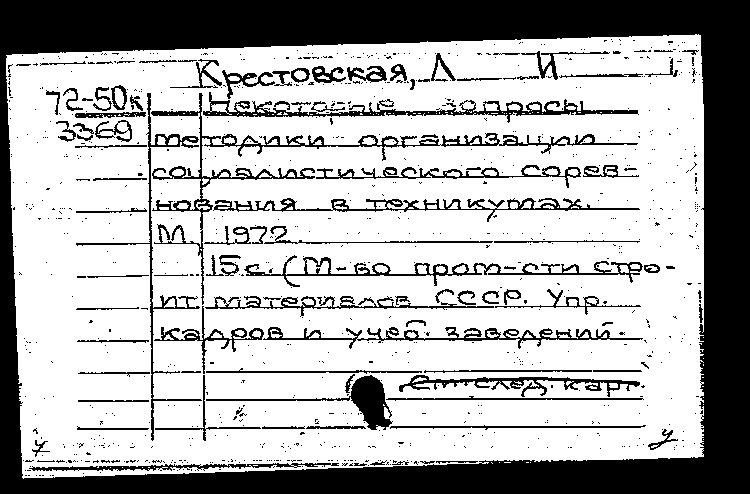 Крестовская, Л И
72-50к Некоторые вопросы
3369 методики организации
социалистического сорев-
нования в техникумах.
М., 1972.
15 с. (М-во пром-сти стро-
ит материалов СССР. Упр.
кадров и учеб. заведений.
См след. карт.
у у